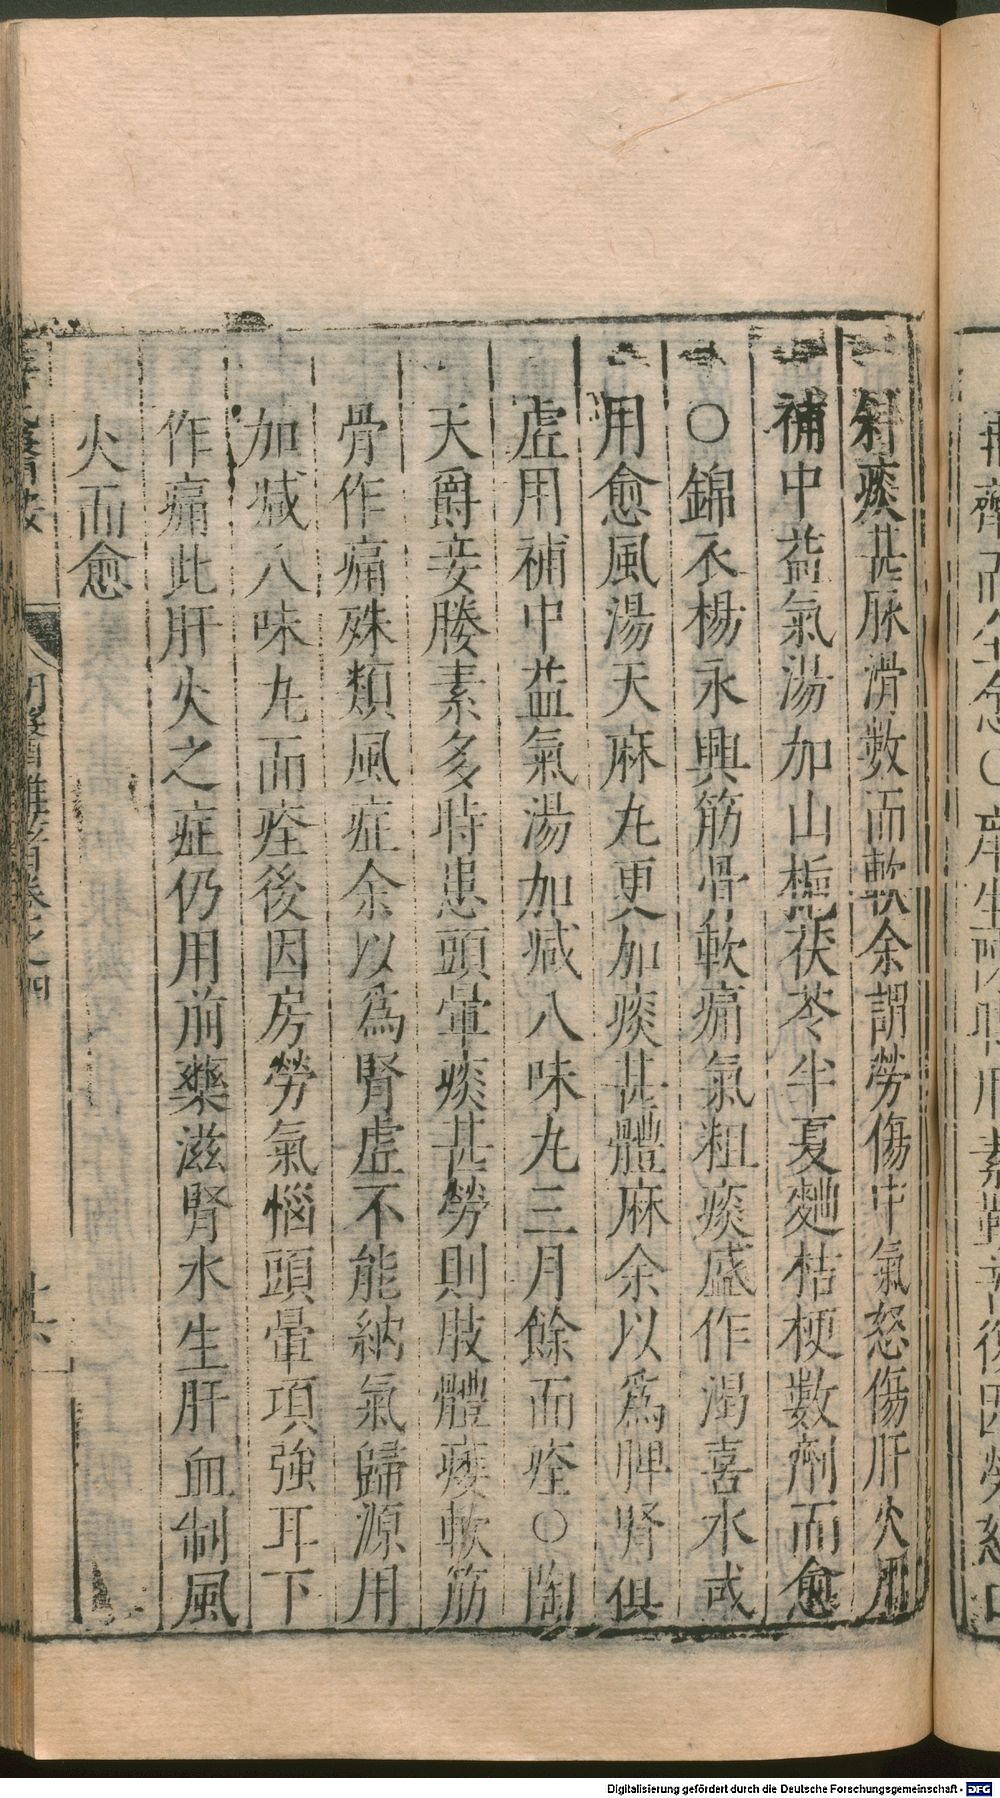 斜痰甚脉滑數而軟余謂勞傷中氣怒傷肝火用
補中益氣湯加山梔茯苓半夏麯桔梗數劑而愈
○錦衣楊永興筋骨軟痛氣粗痰盛作渴喜水或
用愈風湯天麻丸更加痰甚體麻余以爲脾腎俱
虛用補中益氣湯加减八味丸三月餘而痊○陶
天爵妾媵素多時患頭暈痰甚勞則肢體痿軟筋
骨作痛殊類風症余以爲腎虛不能納氣歸源用
加减八味丸而痊後因房勞氣惱頭暈項強耳下
作痛此肝火之症仍用前藥滋腎水生肝血制風
火而愈
明醫雜著卷之四
十六
Digitalisierung gefördert durch die Deutsche Forschungsgemeinschaft - DFG